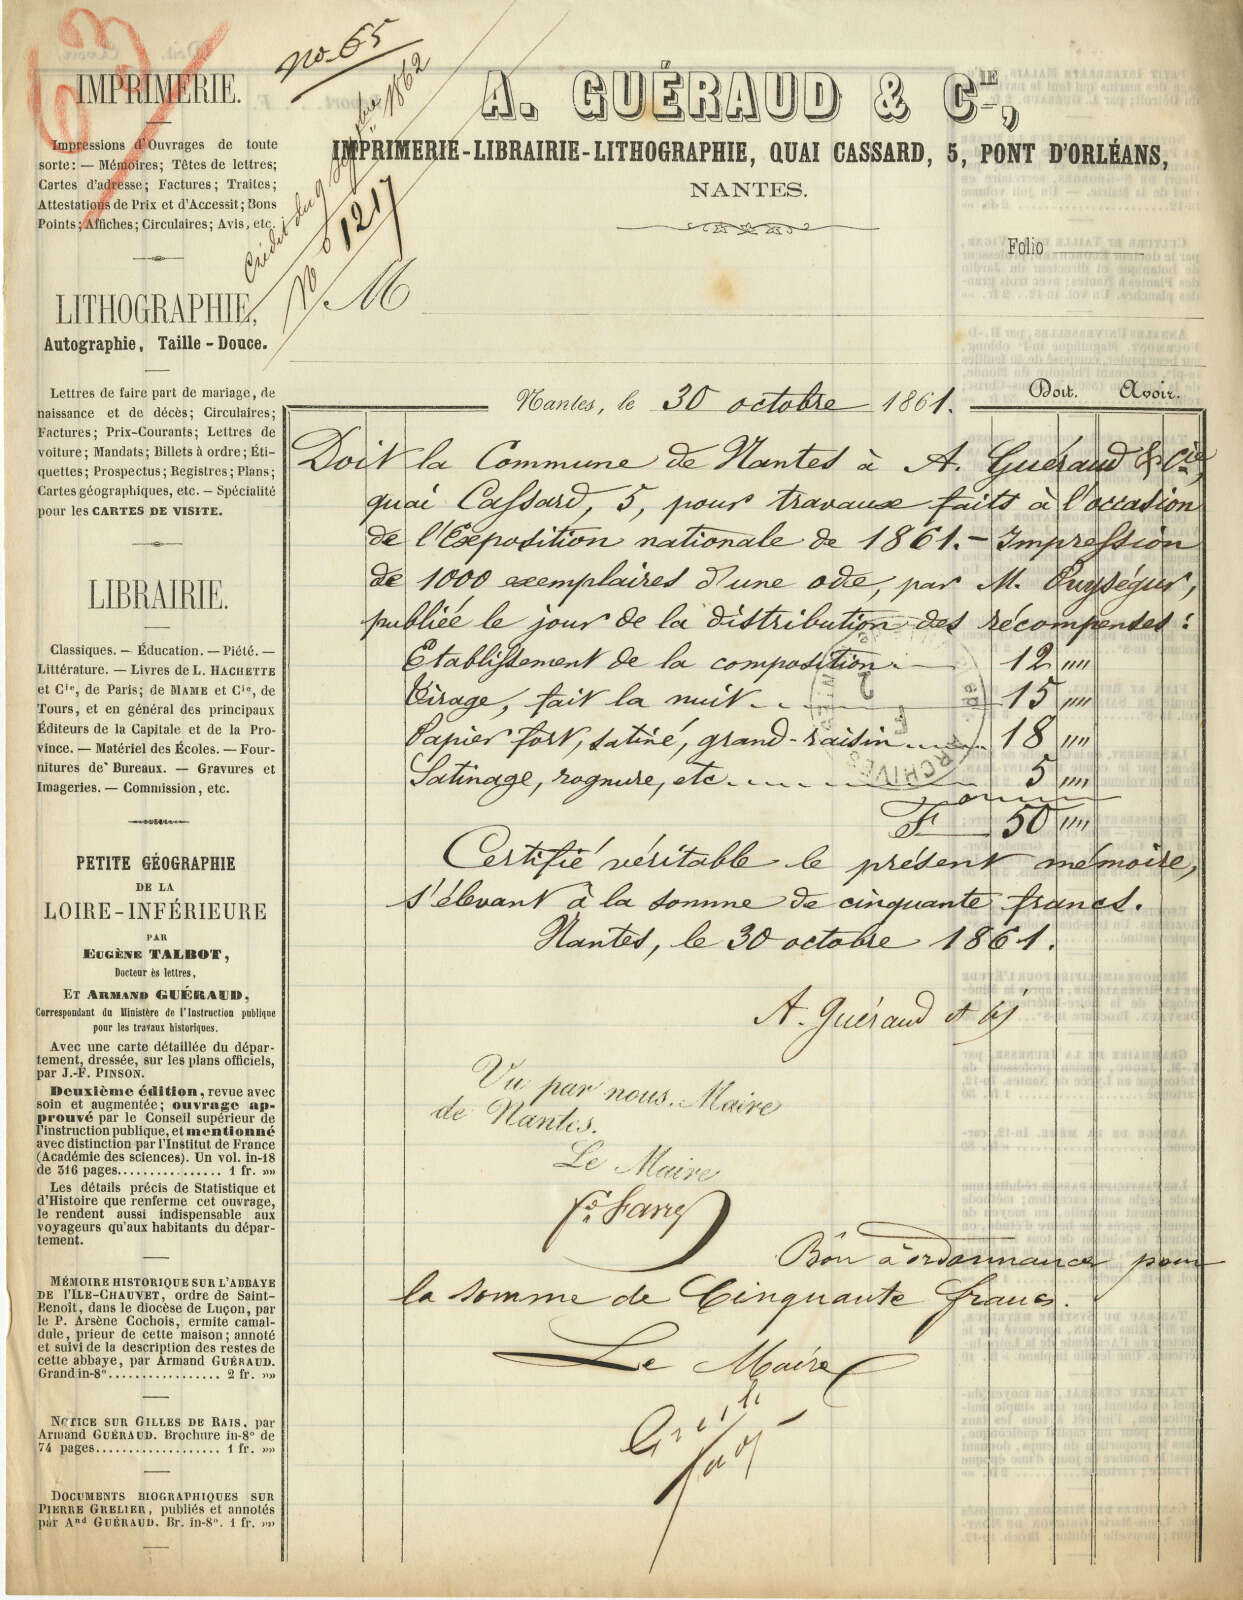 No. 65
Crédit du 9 septbre 1862
No 1217
A. GUÉRAUD & Cie,
IMPRIMERIE-LIBRAIRIE-LITHOGRAPHIE, QUAI CASSARD, 5, PONT D'ORLÉANS,
NANTES.
Folio
M
IMPRIMERIE.
Impressions d'Ouvrages de toute
sorte: — Mémoires; Têtes de lettres;
Cartes d'adresse; Factures; Traites;
Attestations de Prix et d'Accessit; Bons
Points; Affiches; Circulaires; Avis, etc.
LITHOGRAPHIE,
Autographie, Taille-Douce.
Lettres de faire part de mariage, de
naissance et de décès; Circulaires;
Factures; Prix-Courants; Lettres de
voiture; Mandats; Billets à ordre; Éti-
quettes; Prospectus; Registres; Plans;
Cartes géographiques, etc. — Spécialité
pour les CARTES DE VISITE.
LIBRAIRIE.
Classiques. — Éducation. — Piété. —
Littérature. — Livres de L. HACHETTE
et Cie, de Paris; de MAME et Cie, de
Tours, et en général des principaux
Éditeurs de la Capitale et de la Pro-
vince. — Matériel des Écoles. — Four-
nitures de Bureaux. — Gravures et
Imageries. — Commission, etc.
PETITE GÉOGRAPHIE
DE LA
LOIRE-INFÉRIEURE
PAR
EUGÈNE TALBOT,
Docteur ès lettres,
ET ARMAND GUÉRAUD,
Correspondant du Ministère de l'Instruction publique
pour les travaux historiques.
Avec une carte détaillée du dépar-
tement, dressée, sur les plans officiels,
par J.-F. PINSON.
Deuxième édition, revue avec
soin et augmentée; ouvrage ap-
prouvé par le Conseil supérieur de
l'instruction publique, et mentionné
avec distinction par l'Institut de France
(Académie des sciences). Un vol. in-18
de 316 pages................ 1 fr. »»
Les détails précis de Statistique et
d'Histoire que renferme cet ouvrage,
le rendent aussi indispensable aux
voyageurs qu'aux habitants du dépar-
tement.
MÉMOIRE HISTORIQUE SUR L'ABBAYE
DE L'ÎLE-CHAUVET, ordre de Saint-
Benoît, dans le diocèse de Luçon, par
le P. Arsène Cochois, ermite camal-
dule, prieur de cette maison; annoté
et suivi de la description des restes de
cette abbaye, par Armand GUÉRAUD.
Grand in-8º................. 2 fr. »»
NOTICE SUR GILLES DE RAIS, par
Armand GUÉRAUD. Brochure in-8º de
74 pages................... 1 fr. »»
DOCUMENTS BIOGRAPHIQUES SUR
PIERRE GRELIER, publiés et annotés
par And GUÉRAUD. Br. in-8º. 1 fr. »»
Nantes, le 30 octobre 1861.
Doit. Avoir.
Doit la Commune de Nantes à A. Guéraud & Cie,
quai Cassard, 5, pour travaux faits à l'occasion
de l'Exposition nationale de 1861. — Impression
de 1000 exemplaires d'une ode, par M. Puységur,
publiée le jour de la distribution des récompenses:
Etablissement de la composition 12 """
Tirage, fait la nuit 15 """
Papier fort, satiné, grand-raisin 18 """
Satinage, rognure, etc 5 """
F 50 """
Certifié véritable le présent mémoire,
s'élevant à la somme de cinquante francs.
Nantes, le 30 octobre 1861.
A. Guéraud et Cie
Vu par nous, Maire
de Nantes.
Le Maire
Bon à ordonnancer pour
la somme de Cinquante francs.
Le Maire